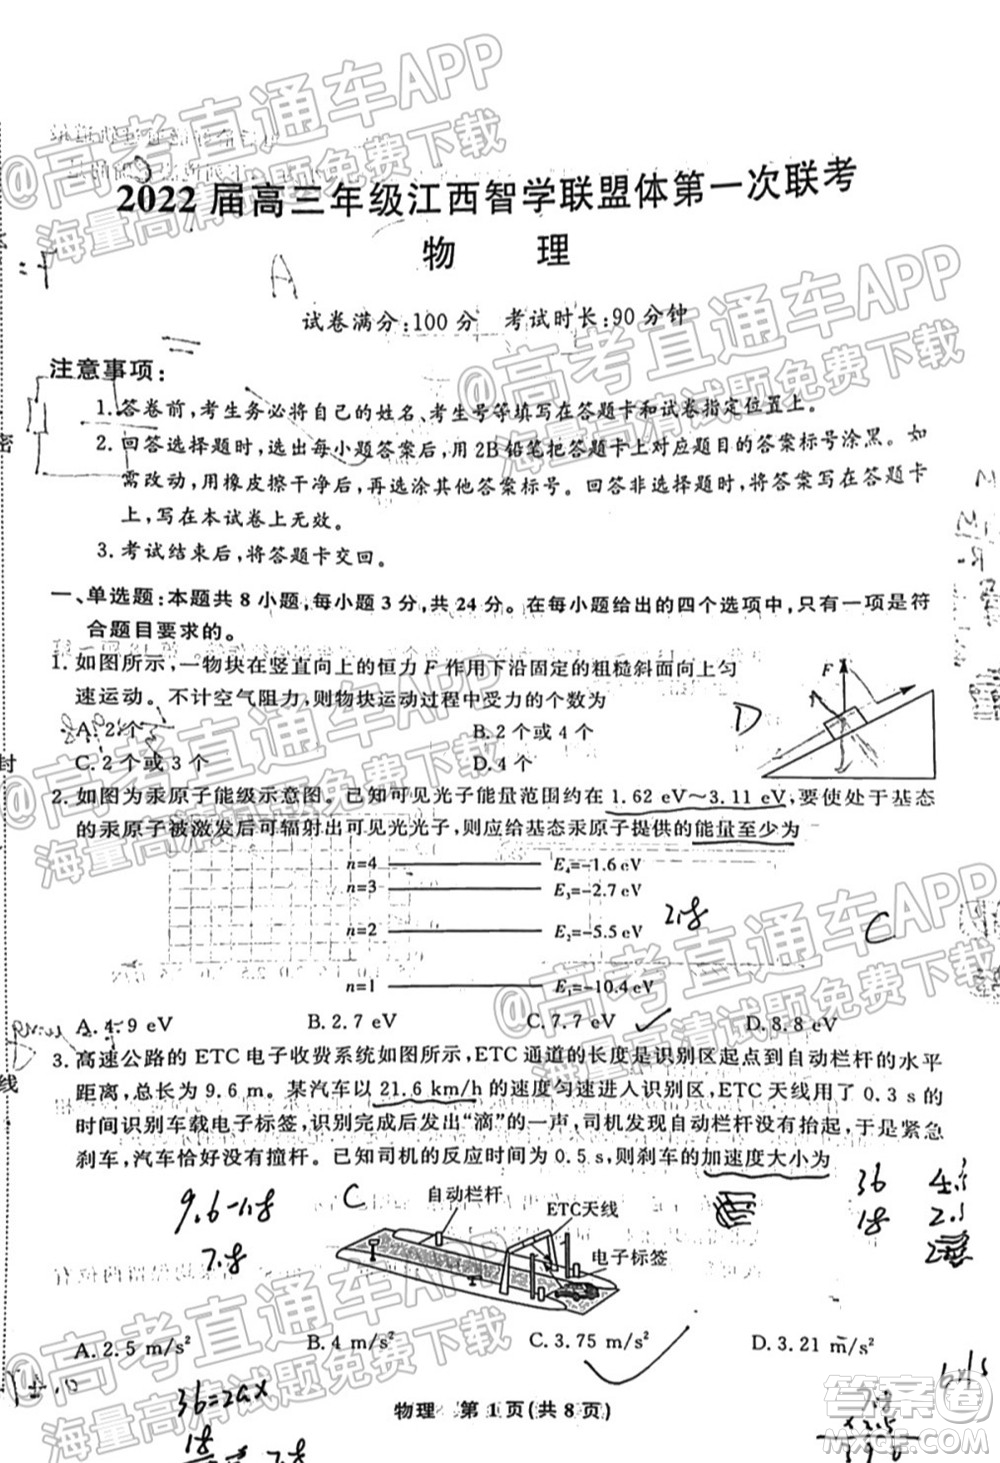 2022届高三年级江西智学联盟体第一次联考
物 理
A
试卷满分:100分 考试时长:90分钟
注意事项:
1.答卷前,考生务必将自己的姓名、考生号等填写在答题卡和试卷指定位置上。
2.回答选择题时,选出每小题答案后,用2B铅笔把答题卡上对应题目的答案标号涂黑。如
需改动,用橡皮擦干净后,再选涂其他答案标号。回答非选择题时,将答案写在答题卡
上,写在本试卷上无效。
3.考试结束后,将答题卡交回。
一、单选题:本题共8小题,每小题3分,共24分。在每小题给出的四个选项中,只有一项是符
合题目要求的。
1.如图所示,一物块在竖直向上的恒力F作用下沿固定的粗糙斜面向上匀
速运动。不计空气阻力,则物块运动过程中受力的个数为
A.2个 B.2个或4个
C.2个或3个 D.4个
D
F
2.如图为汞原子能级示意图。已知可见光子能量范围约在1.62 eV~3.11 eV,要使处于基态
的汞原子被激发后可辐射出可见光光子,则应给基态汞原子提供的能量至少为
n=4 E₄=-1.6 eV
n=3 E₃=-2.7 eV
n=2 E₂=-5.5 eV
n=1 E₁=-10.4 eV
2.8
C
A.4.9 eV B.2.7 eV C.7.7 eV D.8.8 eV
3.高速公路的ETC电子收费系统如图所示,ETC通道的长度是识别区起点到自动栏杆的水平
距离,某通道的长度为9.6 m。某汽车以21.6 km/h的速度匀速进入识别区,ETC天线用了0.3 s的
时间识别车载电子标签,识别完成后发出“滴”的一声,司机发现自动栏杆没有抬起,于是紧急
刹车,汽车恰好没有撞杆。已知司机的反应时间为0.5 s,则刹车的加速度大小为
9.6-1.8
7.8
C
自动栏杆
ETC天线
电子标签
36
18
A.2.5 m/s² B.4 m/s² C.3.75 m/s² D.3.21 m/s²
36=2ax
18
物理 第1页(共8页)
密
封
线
@高考直通车APP
海量高清试题免费下载
@高考直通车APP
海量高清试题免费下载
@高考直通车APP
海量高清试题免费下载
@高考直通车APP
海量高清试题免费下载
@高考直通车APP
海量高清试题免费下载
@高考直通车APP
海量高清试题免费下载
答案圈
MXQE.COM